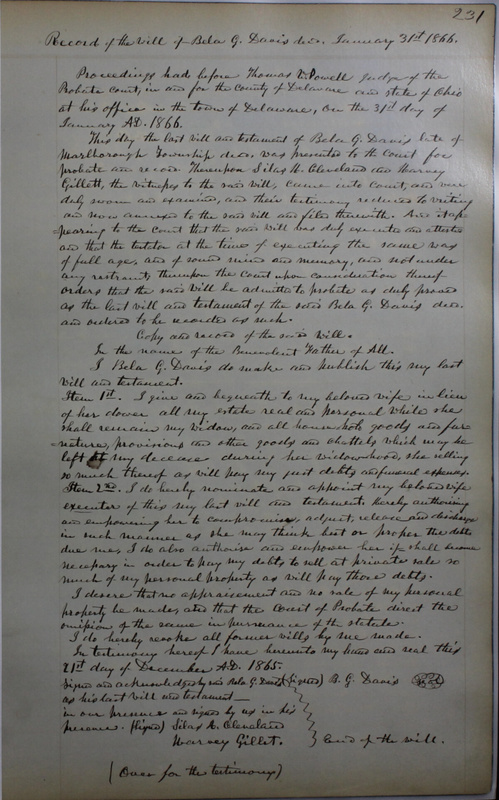 231
Record of the Will of Bela G. Davis decd. January 31st 1866.
Proceedings had before Thomas W. Powell Judge of the
Probate court, in and for the County of Delaware and state of Ohio
at his office in the town of Delaware, on the 31st day of
January A.D. 1866.
This day the last will and testament of Bela G. Davis late of
Marlborough Township decd. was presented to the Court for
probate and record Thereupon Silas H. Cleveland and Harvey
Gillett, the witnesses to the said will, came into court, and were
duly sworn and examined, and their testimony reduced to writing
and now annexed to the said will and filed therewith. And it ap-
pearing to the Court that the said will was duly executed and attested
and that the testator at the time of executing the same was
of full age, and of sound mind and memory, and not under
any restraint, thereupon the Court upon consideration thereof
orders that the said will be admitted to probate as duly proved
as the last will and testament of the said Bela G. Davis decd.
and ordered to be recorded as such.
Copy and record of the said will.
In the name of the Benevolent Father of All.
I Bela G. Davis do make and publish this my last
will and testament.
Item 1st. I give and bequeath to my beloved wife in lieu
of her dower all my estate real and personal while she
shall remain my widow, and all household goods and fur
niture, provisions and other goods and chattels which may be
left at my decease during her widowhood, she selling
so much thereof as will pay my just debts and funeral expenses.
Item 2nd. I do hereby nominate and appoint my beloved wife
executor of this my last will and testament, hereby authorising
and empowering her to compromise, adjust, release and discharge
in such manner as she may think best or proper the debts
due me, I do also authorise and empower her if shall become
necessary in order to pay my debts to sell at private sale so
much of my personal property as will pay those debts.
I desire that no appraisement and no sale of my personal
property be made, and that the Court of Probate direct the
omission of the same in pursuance of the statute.
I do hereby revoke all former wills by me made.
In testimony hereof I have hereunto my hand and seal this
21st day of December A.D. 1865.
Signed and acknowledged by said Bela G. Davis (Signed) B. G. Davis
as his last will and testament
in our presence and signed by us in his
presence. (Signed) Silas H. Cleveland
Harvey Gillet. End of the will.
(Over for the testimony)